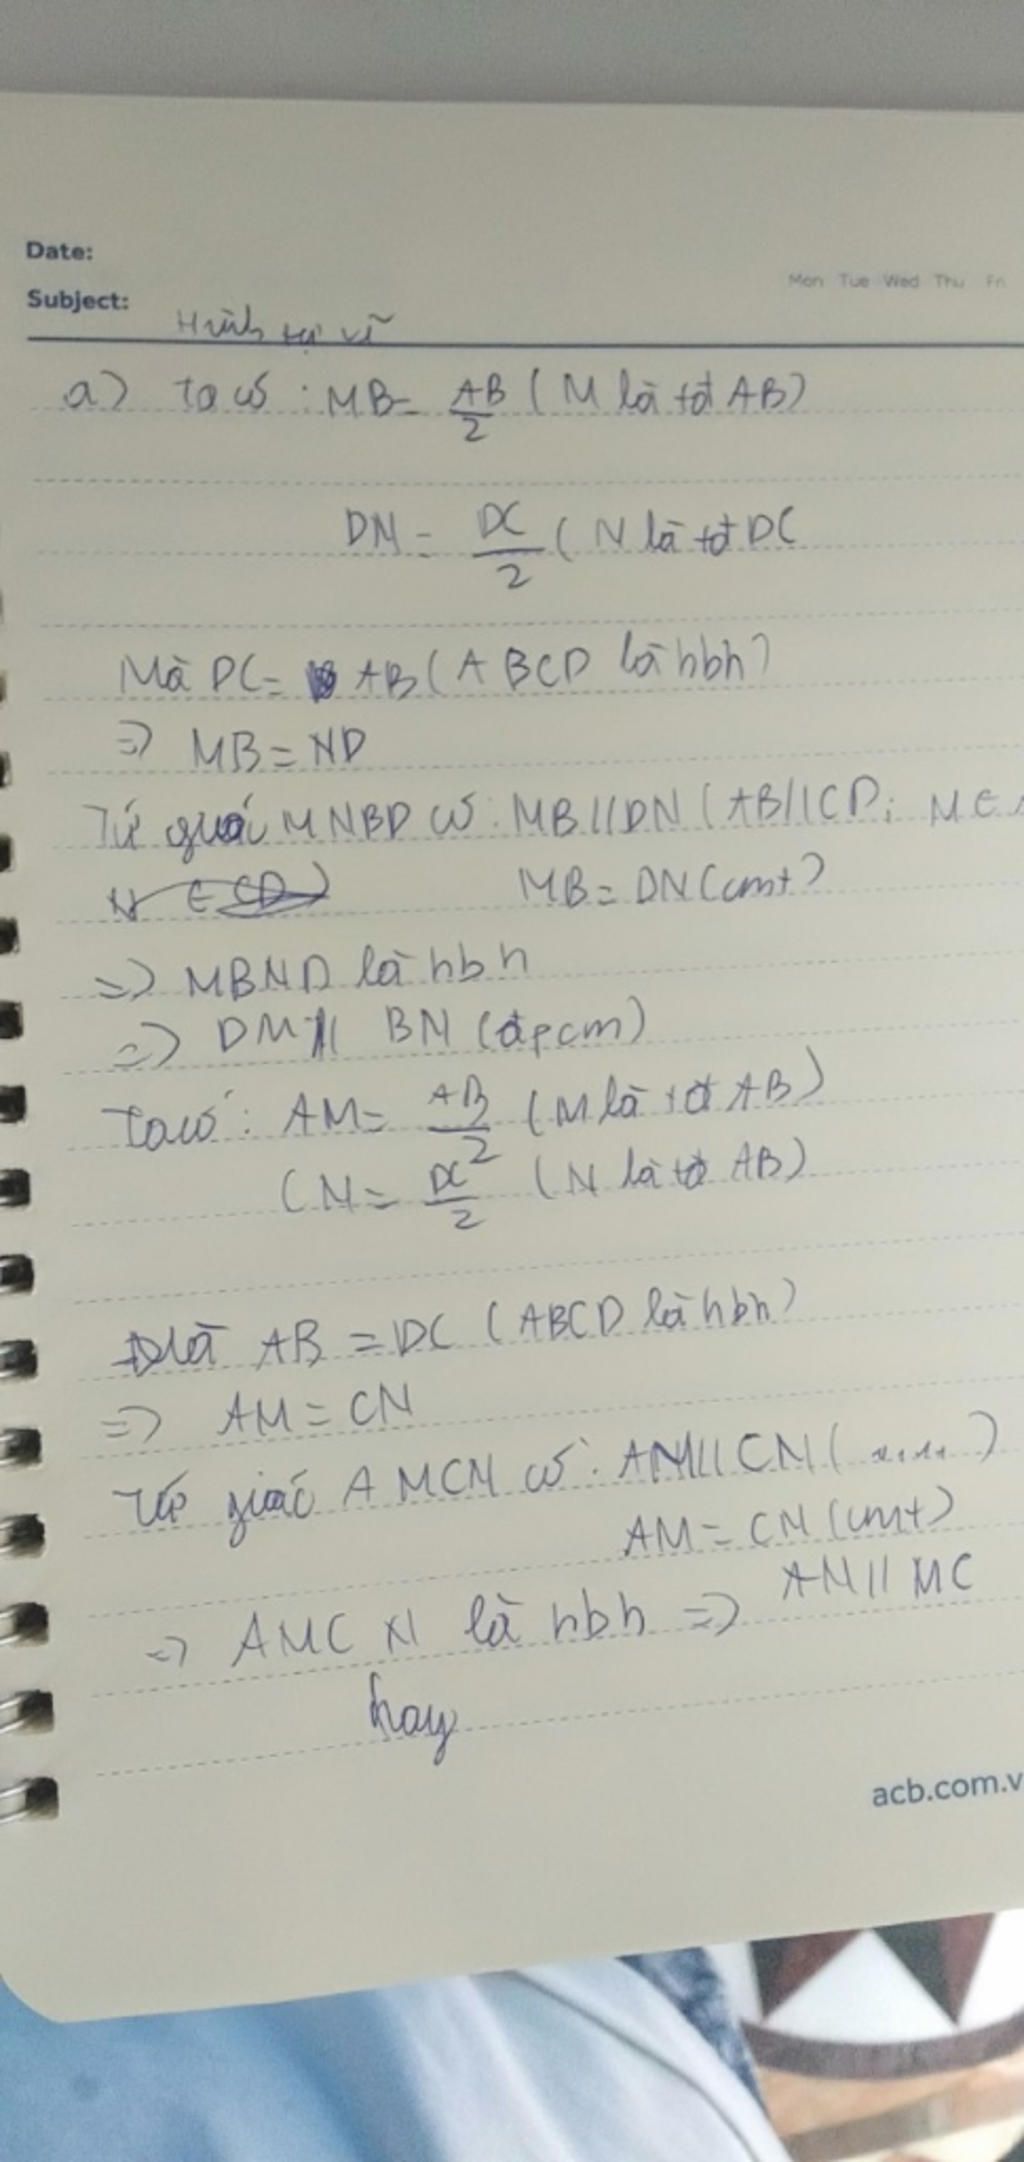 Date:
Mon Tue Wed Thu Fri
Subject: Hình tự vẽ
a) Ta có : MB = AB/2 ( M là tđ AB)
DN = DC/2 ( N là tđ DC
Mà DC = AB ( ABCD là hbh)
=> MB = ND
Tứ giác MNBD có : MB // DN ( AB // CD; M ∈
N ∈ CD)
MB = DN (cmt)
=> MBND là hbh
=> DM // BN (đpcm)
Ta có : AM = AB/2 ( M là tđ AB)
CN = DC/2 ( N là tđ AB)
Mà AB = DC ( ABCD là hbh)
=> AM = CN
Tứ giác AMCN có : AM // CN ( ..... )
AM = CN (cmt)
=> AMCN là hbh => AN // MC
hay
acb.com.v